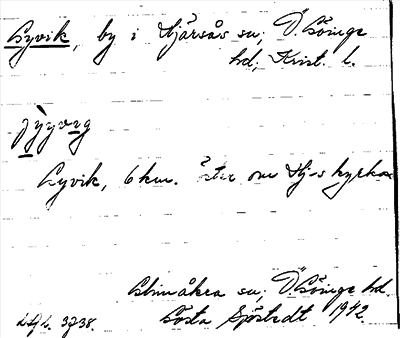 Gyvik, by i Hjärsås sn; Ö. Göinge
hd; Krist. l.
jỳyvig
Gyvik, 6 km. öster om Hj-s kyrka
Glimåkra sn; Ö. Göinge hd.
Gösta Sjöstedt 1942.
3738.